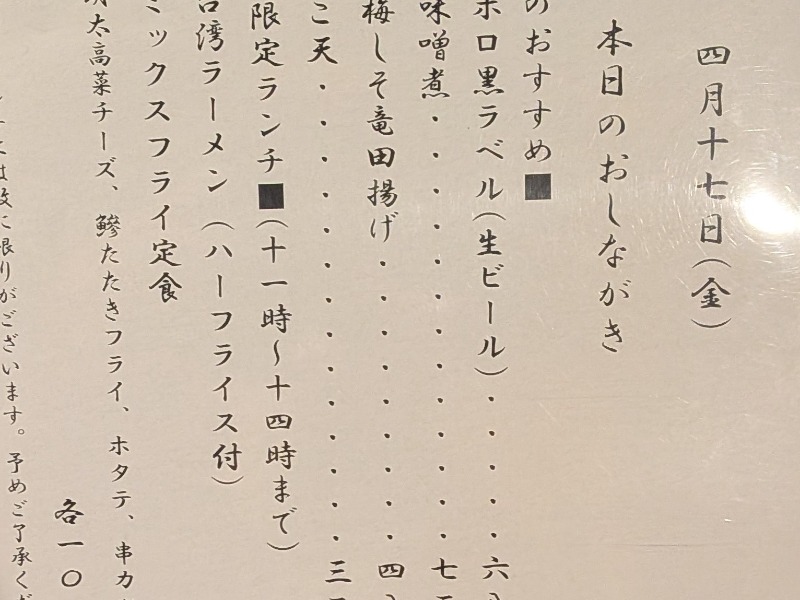 四月十七日(金)
本日のおしながき
のおすすめ■
ホロ黒ラベル(生ビール)・・・・六
味噌煮・・・・・・・・・・七
梅しそ竜田揚げ・・・・・・・四
こ天・・・・・・・・・・・・・三
限定ランチ■(十一時〜十四時まで)
台湾ラーメン(ハーフライス付)
ミックスフライ定食
太高菜チーズ、鰺たたきフライ、ホタテ、串カ
各一〇
は数に限りがございます。予めご了承くだ